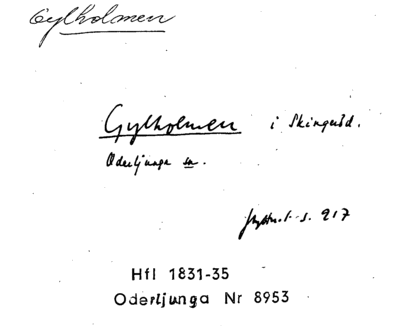 Gylholmen
Gylholmen i Skingeröd.
Oderljunga sn.
s. 217
Hfl 1831-35
Oderljunga Nr 8953